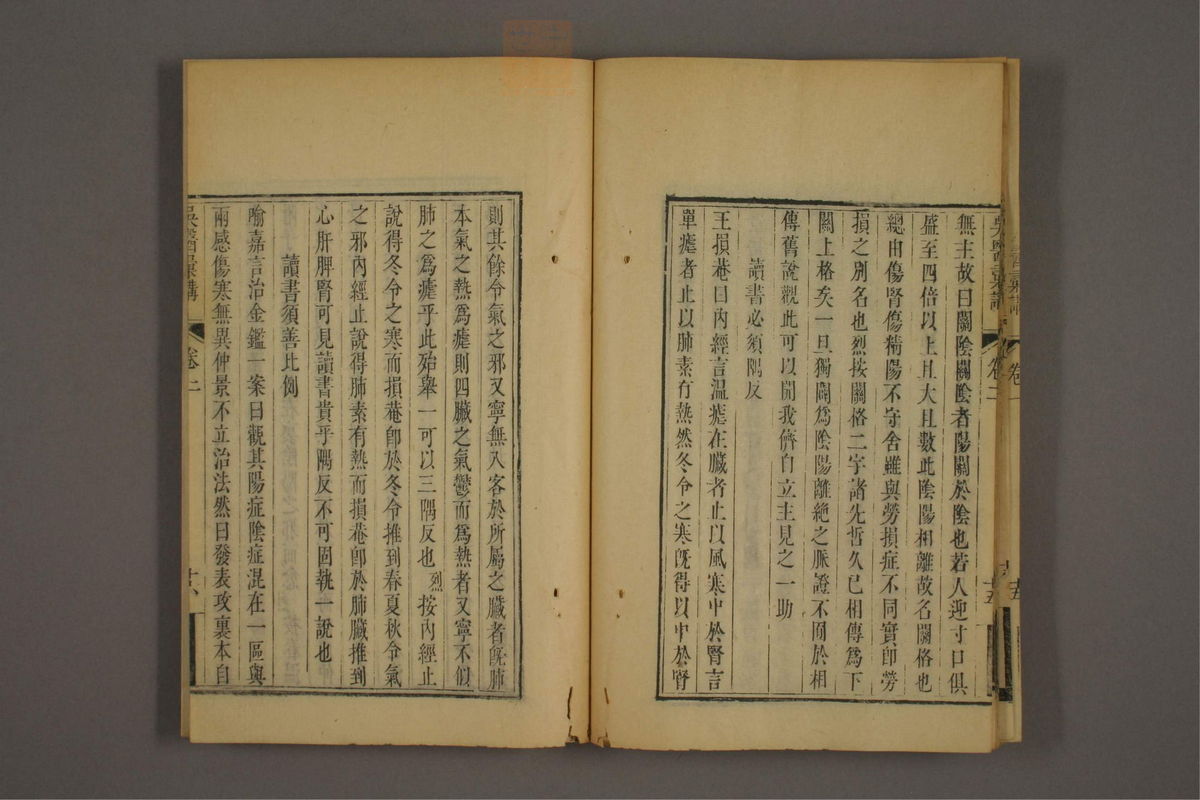 無主故曰關陰關陰者陽關於陰也若人迎寸口俱
盛至四倍以上且大且數此陰陽相離故名關格也
總由傷腎傷精陽不守舍雖與勞損症不同實即勞
損之別名也烈按關格二字諸先哲久已相傳爲下
關上格矣一旦獨闢爲陰陽離絶之脈證不囿於相
傳舊說觀此可以開我儕自立主見之一助
讀書必須隅反
王損菴曰內經言溫瘧在臟者止以風寒中於腎言
單瘧者止以肺素有熱然冬令之寒旣得以中於腎
則其餘令氣之邪又寧無入客於所屬之臟者旣肺
本氣之熱爲瘧則四臟之氣鬱而爲熱者又寧不似
肺之爲瘧乎此殆舉一可以三隅反也烈按內經止
說得冬令之寒而損菴卽於冬令推到春夏秋令氣
之邪內經止說得肺素有熱而損菴卽於肺臟推到
心肝脾腎可見讀書貴乎隅反不可固執一說也
讀書須善比例
喻嘉言治金鑑一案曰觀其陽症陰症混在一區與
兩感傷寒無異仲景不立治法然曰發表攻裏本自
吳醫彙講
卷二
十六